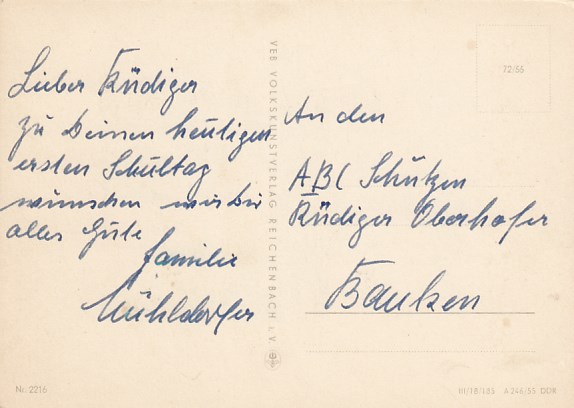 Lieber Rüdiger
zu Deinen heutigen
ersten Schultag
wünschen wir Dir
alles Gute
Familie
Mühldorfer
VEB VOLKSKUNSTVERLAG REICHENBACH i. V.
72/56
An den
ABC Schützen
Rüdiger Oberhofer
Nr. 2216
III/18/185 A 246/55 DDR